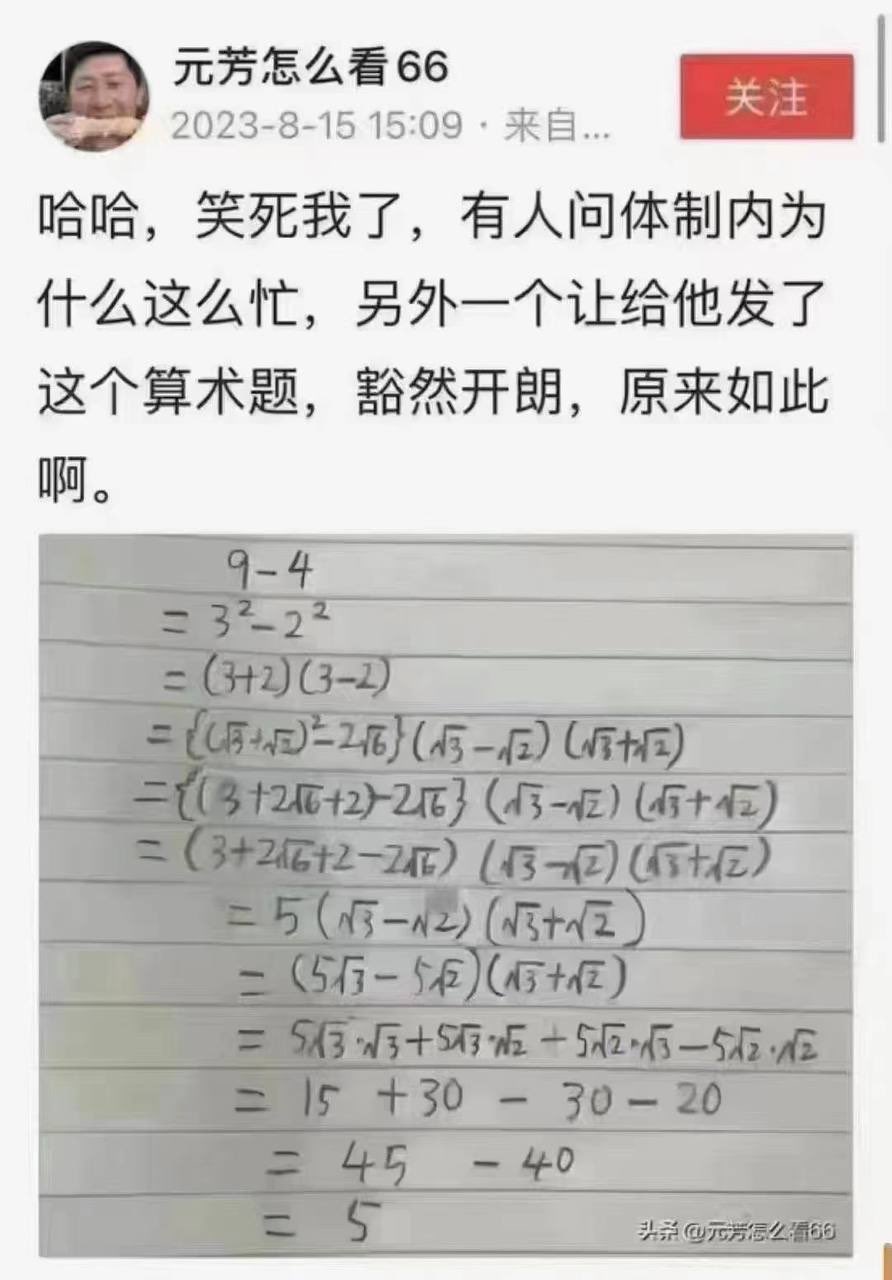 元芳怎么看66
2023-8-15 15:09 · 来自...
关注
哈哈，笑死我了，有人问体制内为
什么这么忙，另外一个让给他发了
这个算术题，豁然开朗，原来如此
啊。
9-4
= 3²-2²
= (3+2)(3-2)
= {(√3+√2)²-2√6}(√3-√2)(√3+√2)
= {(3+2√6+2)-2√6}(√3-√2)(√3+√2)
= (3+2√6+2-2√6)(√3-√2)(√3+√2)
= 5(√3-√2)(√3+√2)
= (5√3-5√2)(√3+√2)
= 5√3·√3+5√3·√2+5√2·√3-5√2·√2
= 15 +30 - 30-20
= 45 - 40
= 5
头条 @元芳怎么看66